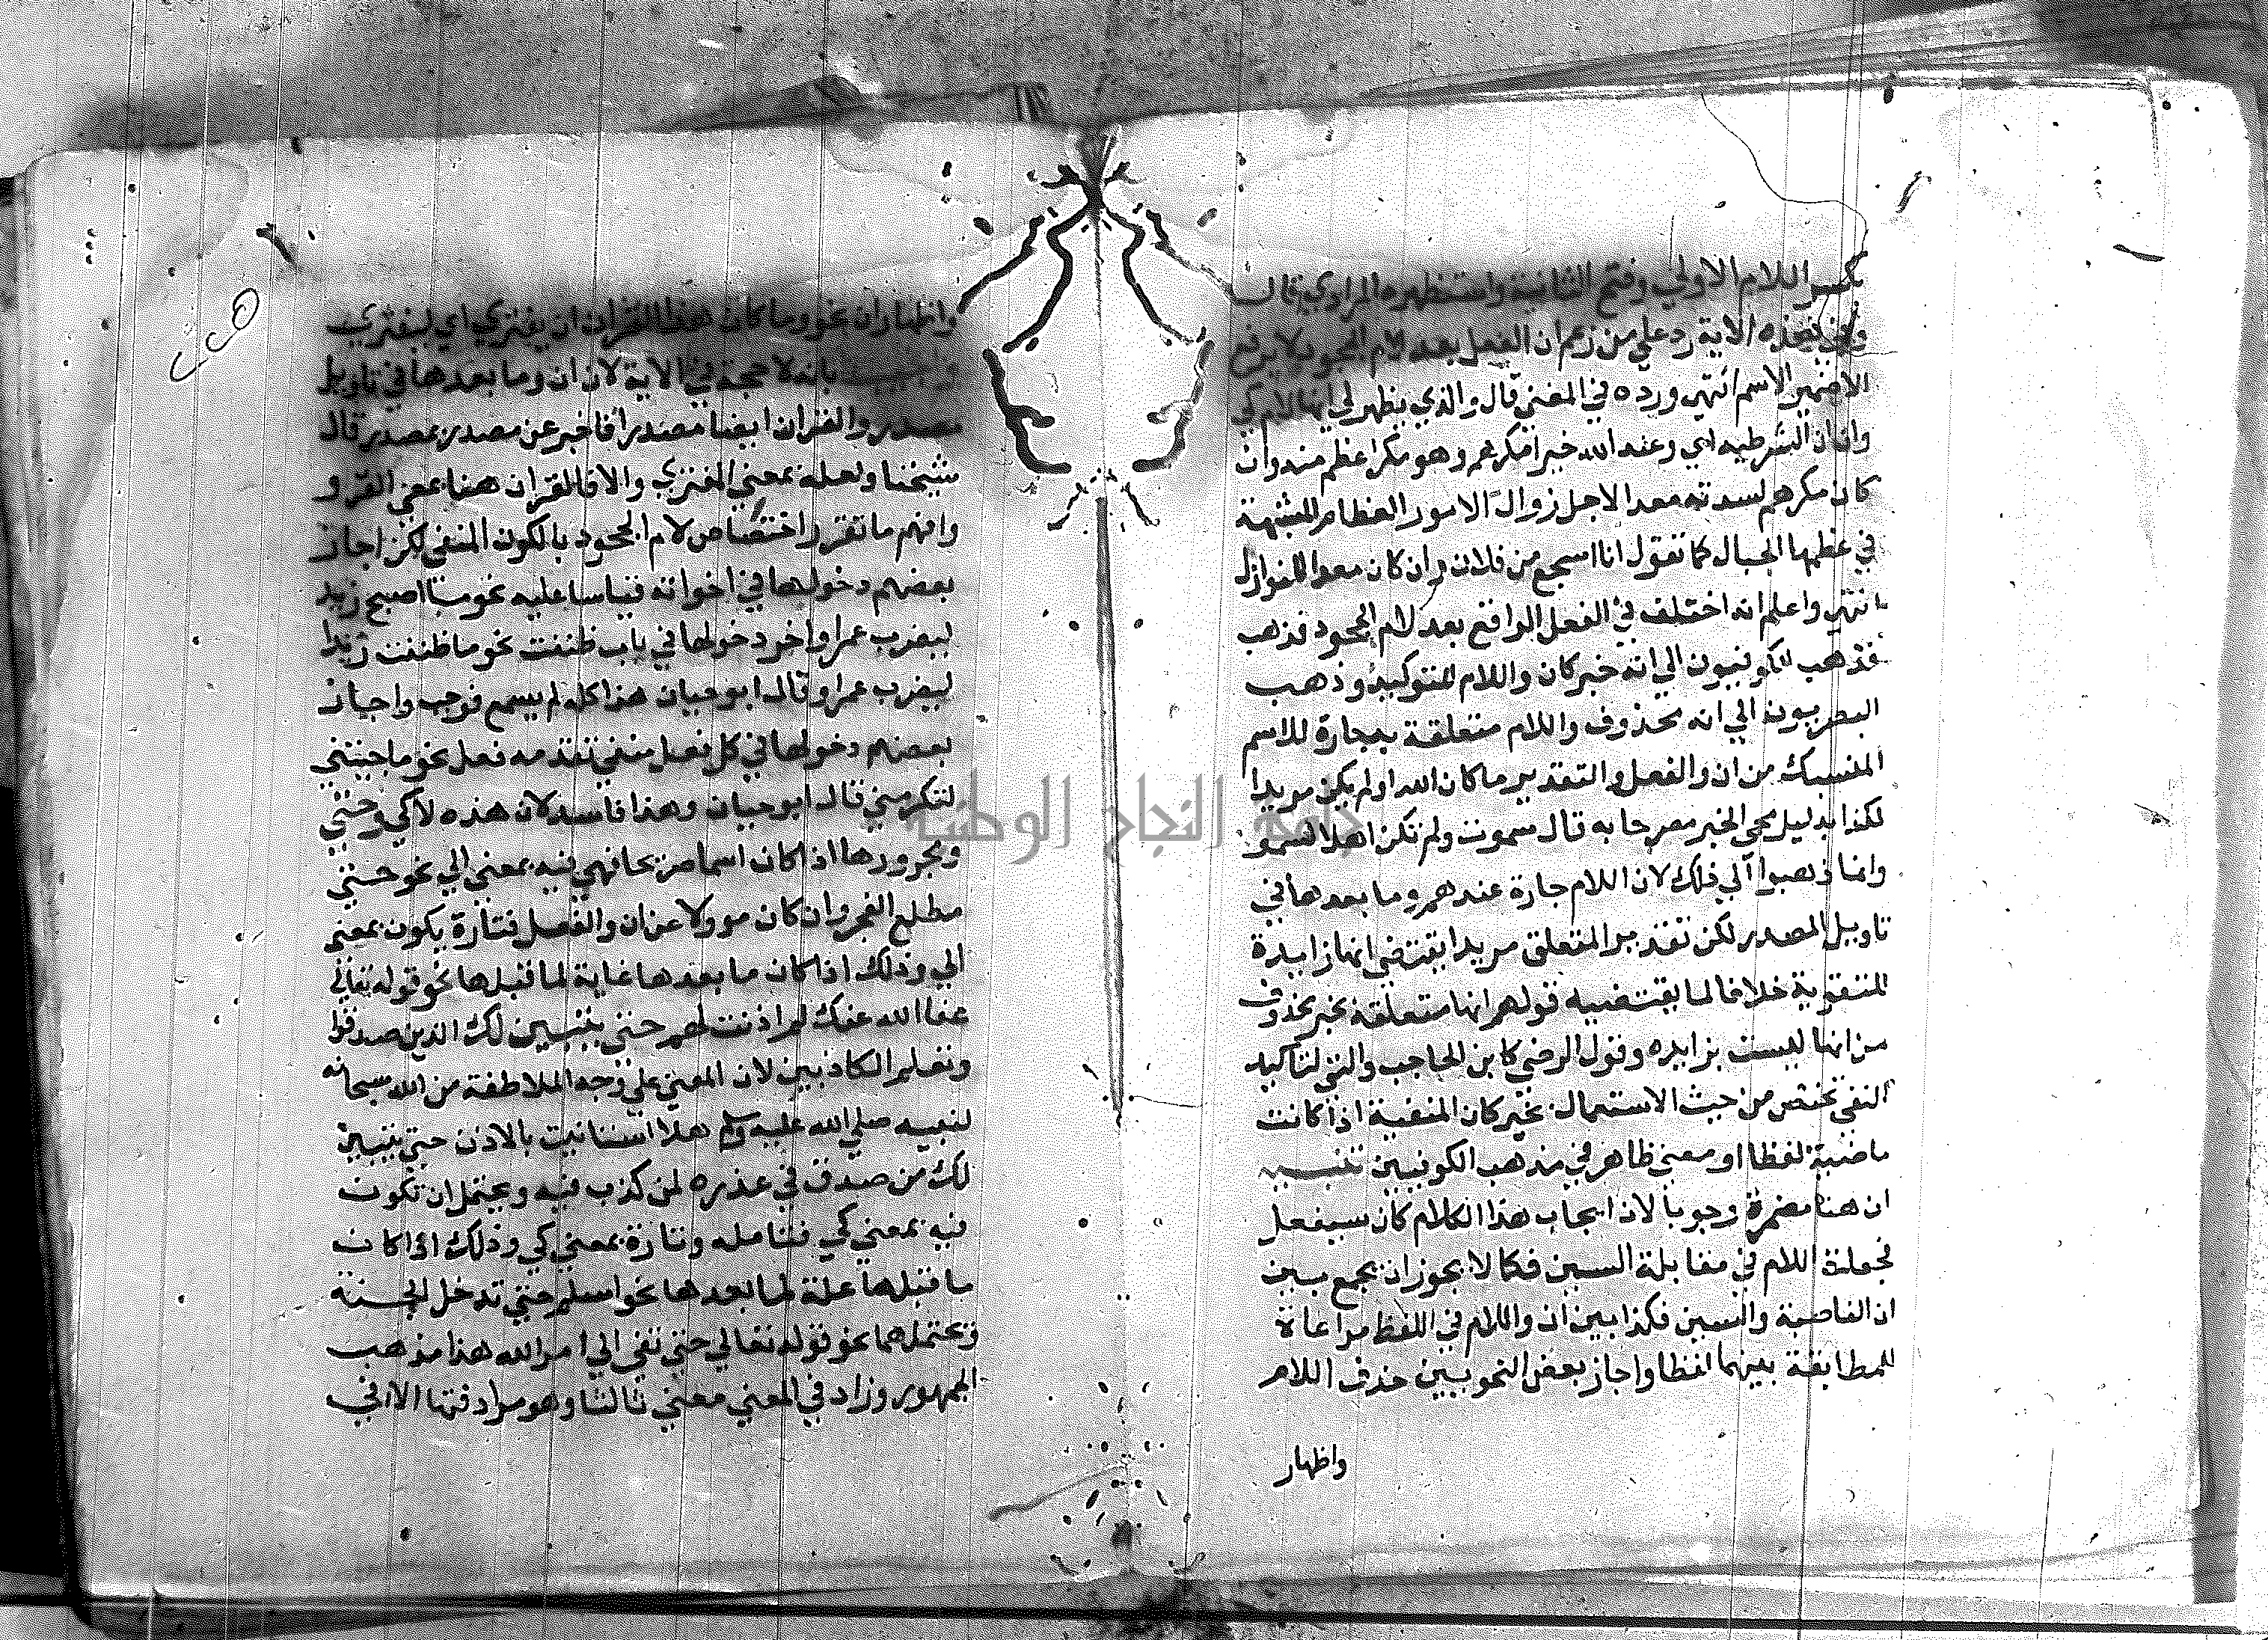 بكسر اللام الاولي وفتح الثانية واستظهره المرادي قال
وفي هذه الاية رد علي من زعم ان الفعل بعد لام الجحود لا يرفع
الا ضمير الاسم انتهي ورده في المغني قال والذي يظهر لي انها لام كي
وان ان الشرطيه اي وعند الله خبرا مكرهم وهو مكر اعظم منه وان
كان مكرهم لسدته معدا لاجل زوال الامور العظام المشبهة
في عظمها الجبال كما تقول انا اسجع من فلان وان كان معدا للنوازل
انتهي واعلم انه اختلف في الفعل الواقع بعد لام الجحود فذهب
فذهب الكوفيون الي انه خبر كان واللام للتوكيد وذهب
البصريون الي انه محذوف واللام متعلقة بجارة للاسم
المنسبك من ان والفعل والتقدير ما كان الله او لم يكن مريدا
لكذا بدليل مجي الخبر مصرحا به قال سموت ولم تكن اهلا لتسمو
وانما ذهبوا الي ذلك لان اللام جارة عندهم وما بعدها في
تاويل المصدر لكن تقدير المتعلق مريدا يقتضي انها زايدة
للتقوية خلافا لما يقتضيه قولهم انها متعلقة بخبر محذوف
من انها ليست بزايده وقول الرضي كابن الحاجب والتي لتاكيد
النفي تختص من حيث الاستعمال بخبر كان المنفية اذا كانت
ماضية لفظا او معني ظاهر في مذهب الكوفيين تنبيه
ان هنا مضمرة وجوبا لان ايجاب هذا الكلام كان سيفعل
فجعلت اللام في مقابلة السين فكما لا يجوز ان يجمع بين
ان الناصبة والسين فكذا بين ان واللام في اللفظ مراعاة
للمطابقة بينهما لفظا واجاز بعض النحويين حذف اللام
واظهار
واظهار ان نحو وما كان هذا القران ان يفتري اي ليفتري
واجيب بانه لا حجة في الاية لان ان وما بعدها في تاويل
مصدر والقران ايضا مصدر فاخبر عن مصدر بمصدر قال
شيخنا ولعله بمعني المفتري والا فالقران هنا بمعني المقرو
وافهم ما تقرر اختصاص لام الجحود بالكون المنفي لكن اجاز
بعضهم دخولها في اخواته قياسا عليه نحو ما اصبح زيد
ليضرب عمرا واخر دخولها في باب ظننت نحو ما ظننت زيدا
ليضرب عمرا وقال ابو حيان هذا كله لم يسمع فوجب واجاز
بعضهم دخولها في كل فعل منفي تقدمه فعل نحو ما جيتني
لتكرمني قال ابو حيان وهذا فاسد لان هذه لا كي وحتي
ومجرورها اذا كان اسما صريحا فهي فيه بمعني الي نحو حتي
مطلع الفجر وان كان موولا عن ان والفعل فتارة يكون بمعني
الي وذلك اذا كان ما بعدها غاية لما قبلها نحو قوله تعالي
عفا الله عنك لم اذنت لهم حتي يتبين لك الذين صدقوا
وتعلم الكاذبين لان المعني علي وجه الملاطفة من الله سبحانه
لنبيه صلي الله عليه وسلم هلا استانيت بالاذن حتي يتبين
لك من صدق في عذره لمن كذب فيه ويحتمل ان تكون
فيه بمعني كي فتامله وتارة بمعني كي وذلك اذا كان
ما قبلها علة لما بعدها نحو اسلم حتي تدخل الجنة
وتحتملهما نحو قوله تعالي حتي تفي الي امر الله هذا مذهب
الجمهور وزاد في المغني معني ثالثا وهو مرادفتها الا في
جامعة النجاح الوطنية